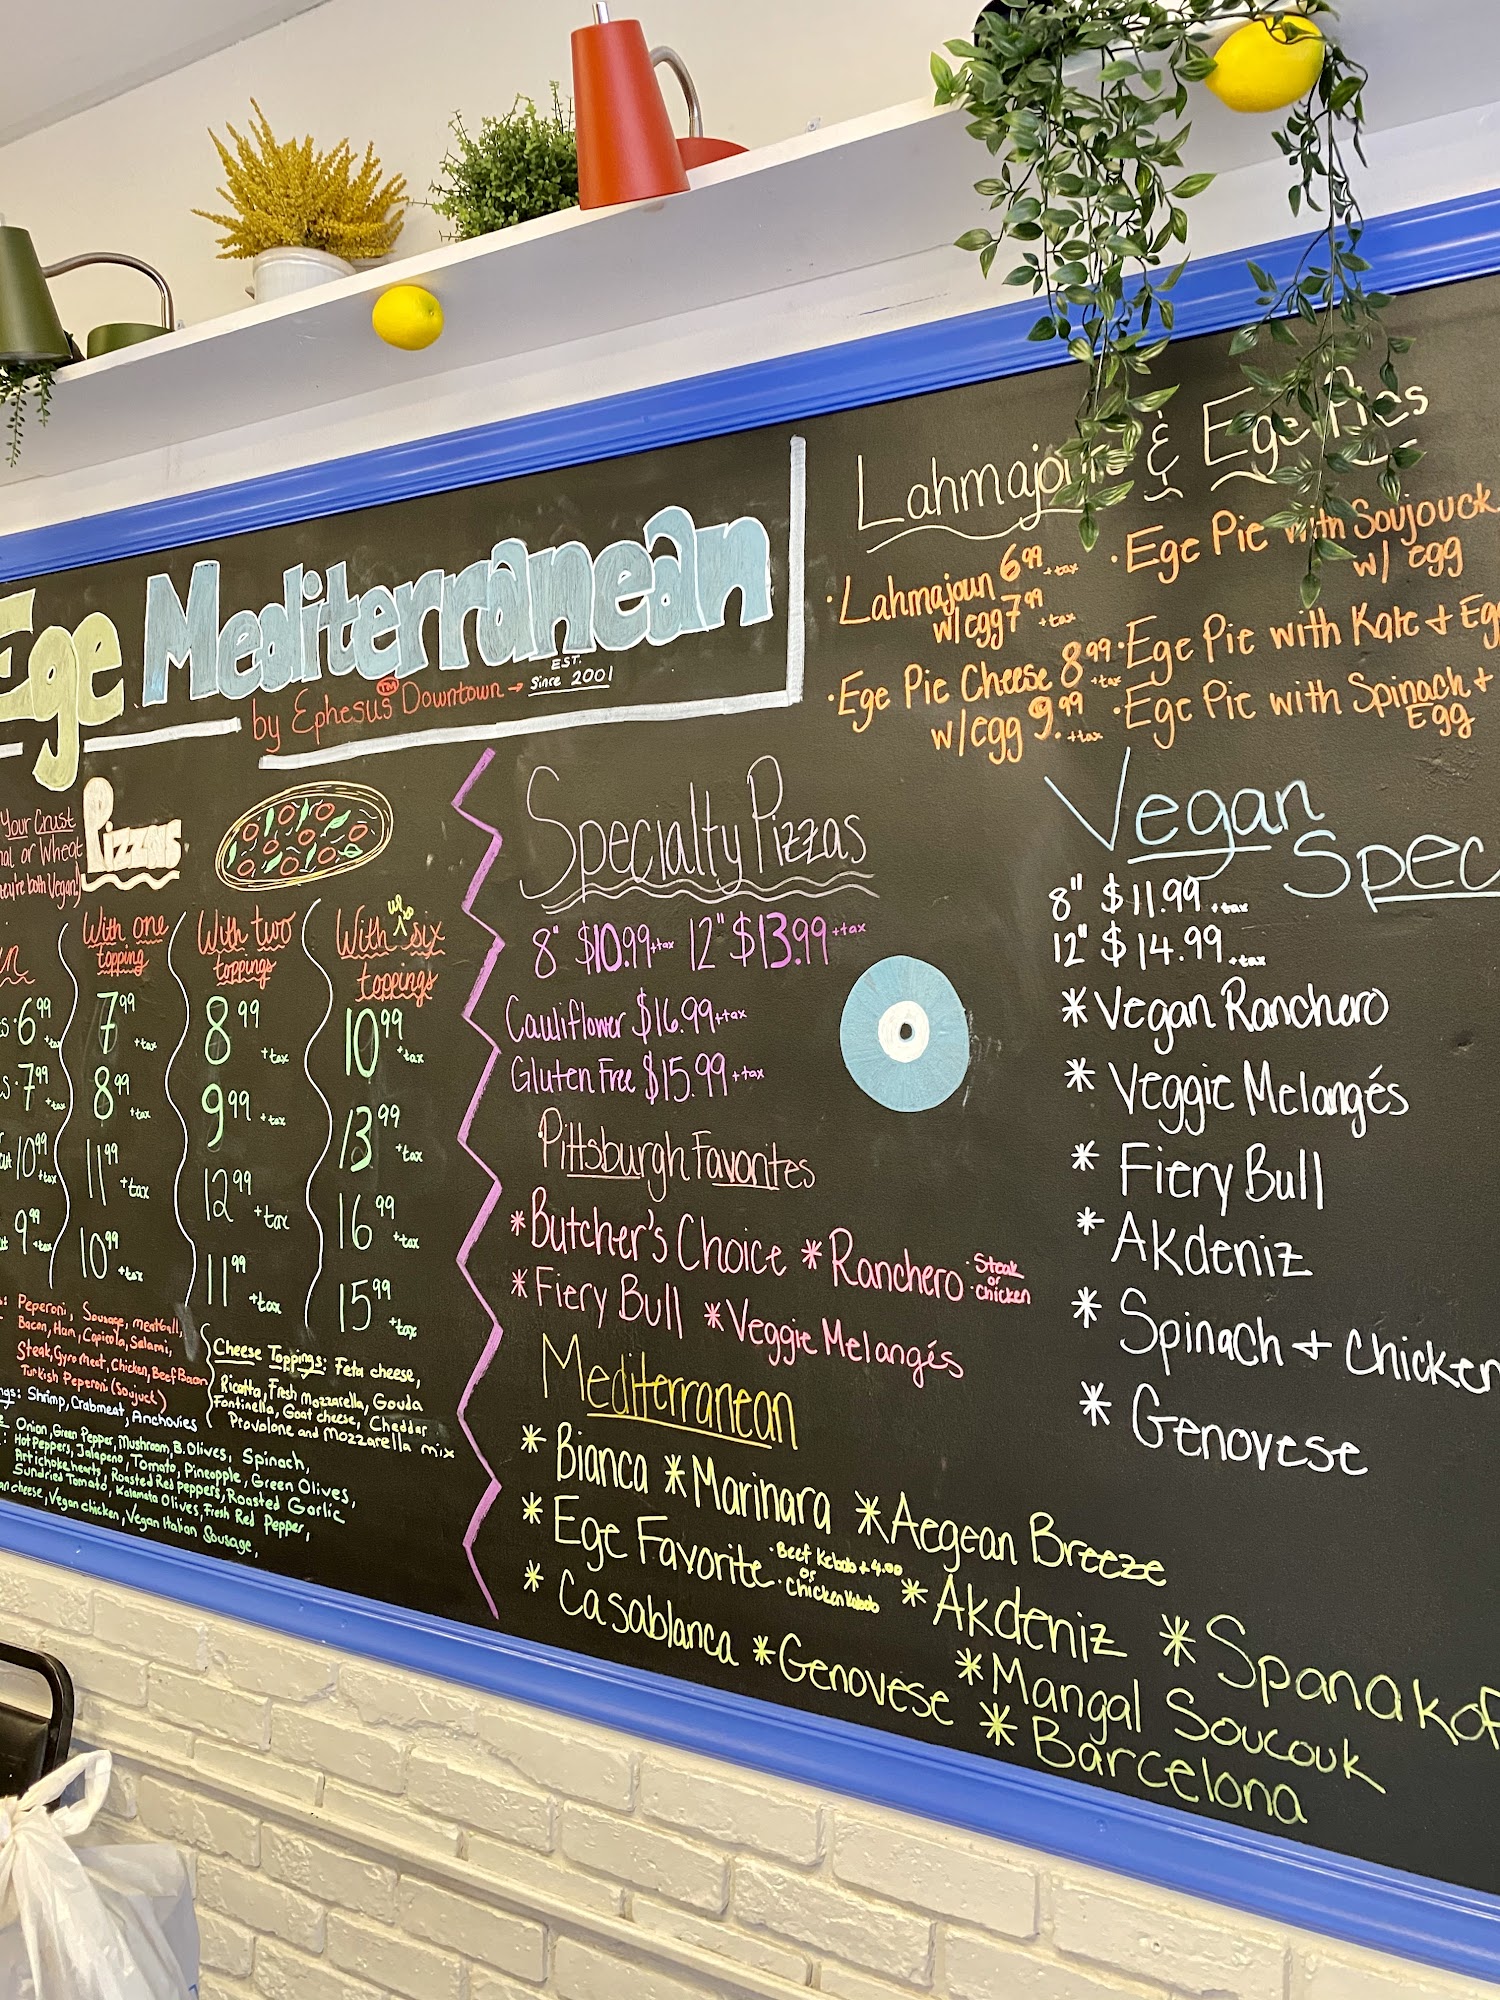 Ege Mediterranean
EST.
by Ephesus TM Downtown → Since 2001
Your Crust
or Wheat
they're both Vegan!)
Pizzas
With one topping
With two toppings
With up to six toppings
6.99 +tax
7.99 +tax
8.99 +tax
10.99 +tax
7.99 +tax
8.99 +tax
9.99 +tax
13.99 +tax
10.99 +tax
11.99 +tax
12.99 +tax
16.99 +tax
9.99 +tax
10.99 +tax
11.99 +tax
15.99 +tax
Peperoni, Sausage, meatball,
Bacon, Ham, Capicola, Salami,
Steak, Gyro meat, Chicken, Beef Bacon
Turkish Peperoni (Soujuct)
Shrimp, Crabmeat, Anchovies
Onion, Green Pepper, Mushroom, B. Olives, Spinach,
Hot Peppers, Jalapeno, Tomato, Pineapple, Green Olives,
Artichoke hearts, Roasted Red peppers, Roasted Garlic
Sundried Tomato, Kalamata Olives, Fresh Red Pepper,
cheese, Vegan chicken, Vegan Italian Sausage,
Cheese Toppings: Feta cheese,
Ricotta, Fresh mozzarella, Gouda
Fontinella, Goat cheese, Cheddar
Provolone and Mozzarella mix
Specialty Pizzas
8" $10.99 +tax 12" $13.99 +tax
Cauliflower $16.99 +tax
Gluten Free $15.99 +tax
Pittsburgh Favorites
* Butcher's Choice * Ranchero · Steak or · Chicken
* Fiery Bull * Veggie Melangés
Mediterranean
* Bianca * Marinara * Aegean Breeze
* Ege Favorite · Beef Kebab + 4.00 or · Chicken Kebab * Akdeniz * Spanakop
* Casablanca * Genovese * Mangal Soucouk
* Barcelona
Lahmajoun & Ege Pies
· Lahmajoun 6.99 +tax
w/egg 7.99 +tax
· Ege Pie Cheese 8.99 +tax
w/egg 9.99 +tax
· Ege Pie with Soujouck
w/ egg
· Ege Pie with Kale + Eg
· Ege Pie with Spinach +
Egg
Vegan
Spec
8" $11.99 +tax
12" $14.99 +tax
* Vegan Ranchero
* Veggie Melangés
* Fiery Bull
* Akdeniz
* Spinach + Chicken
* Genovese